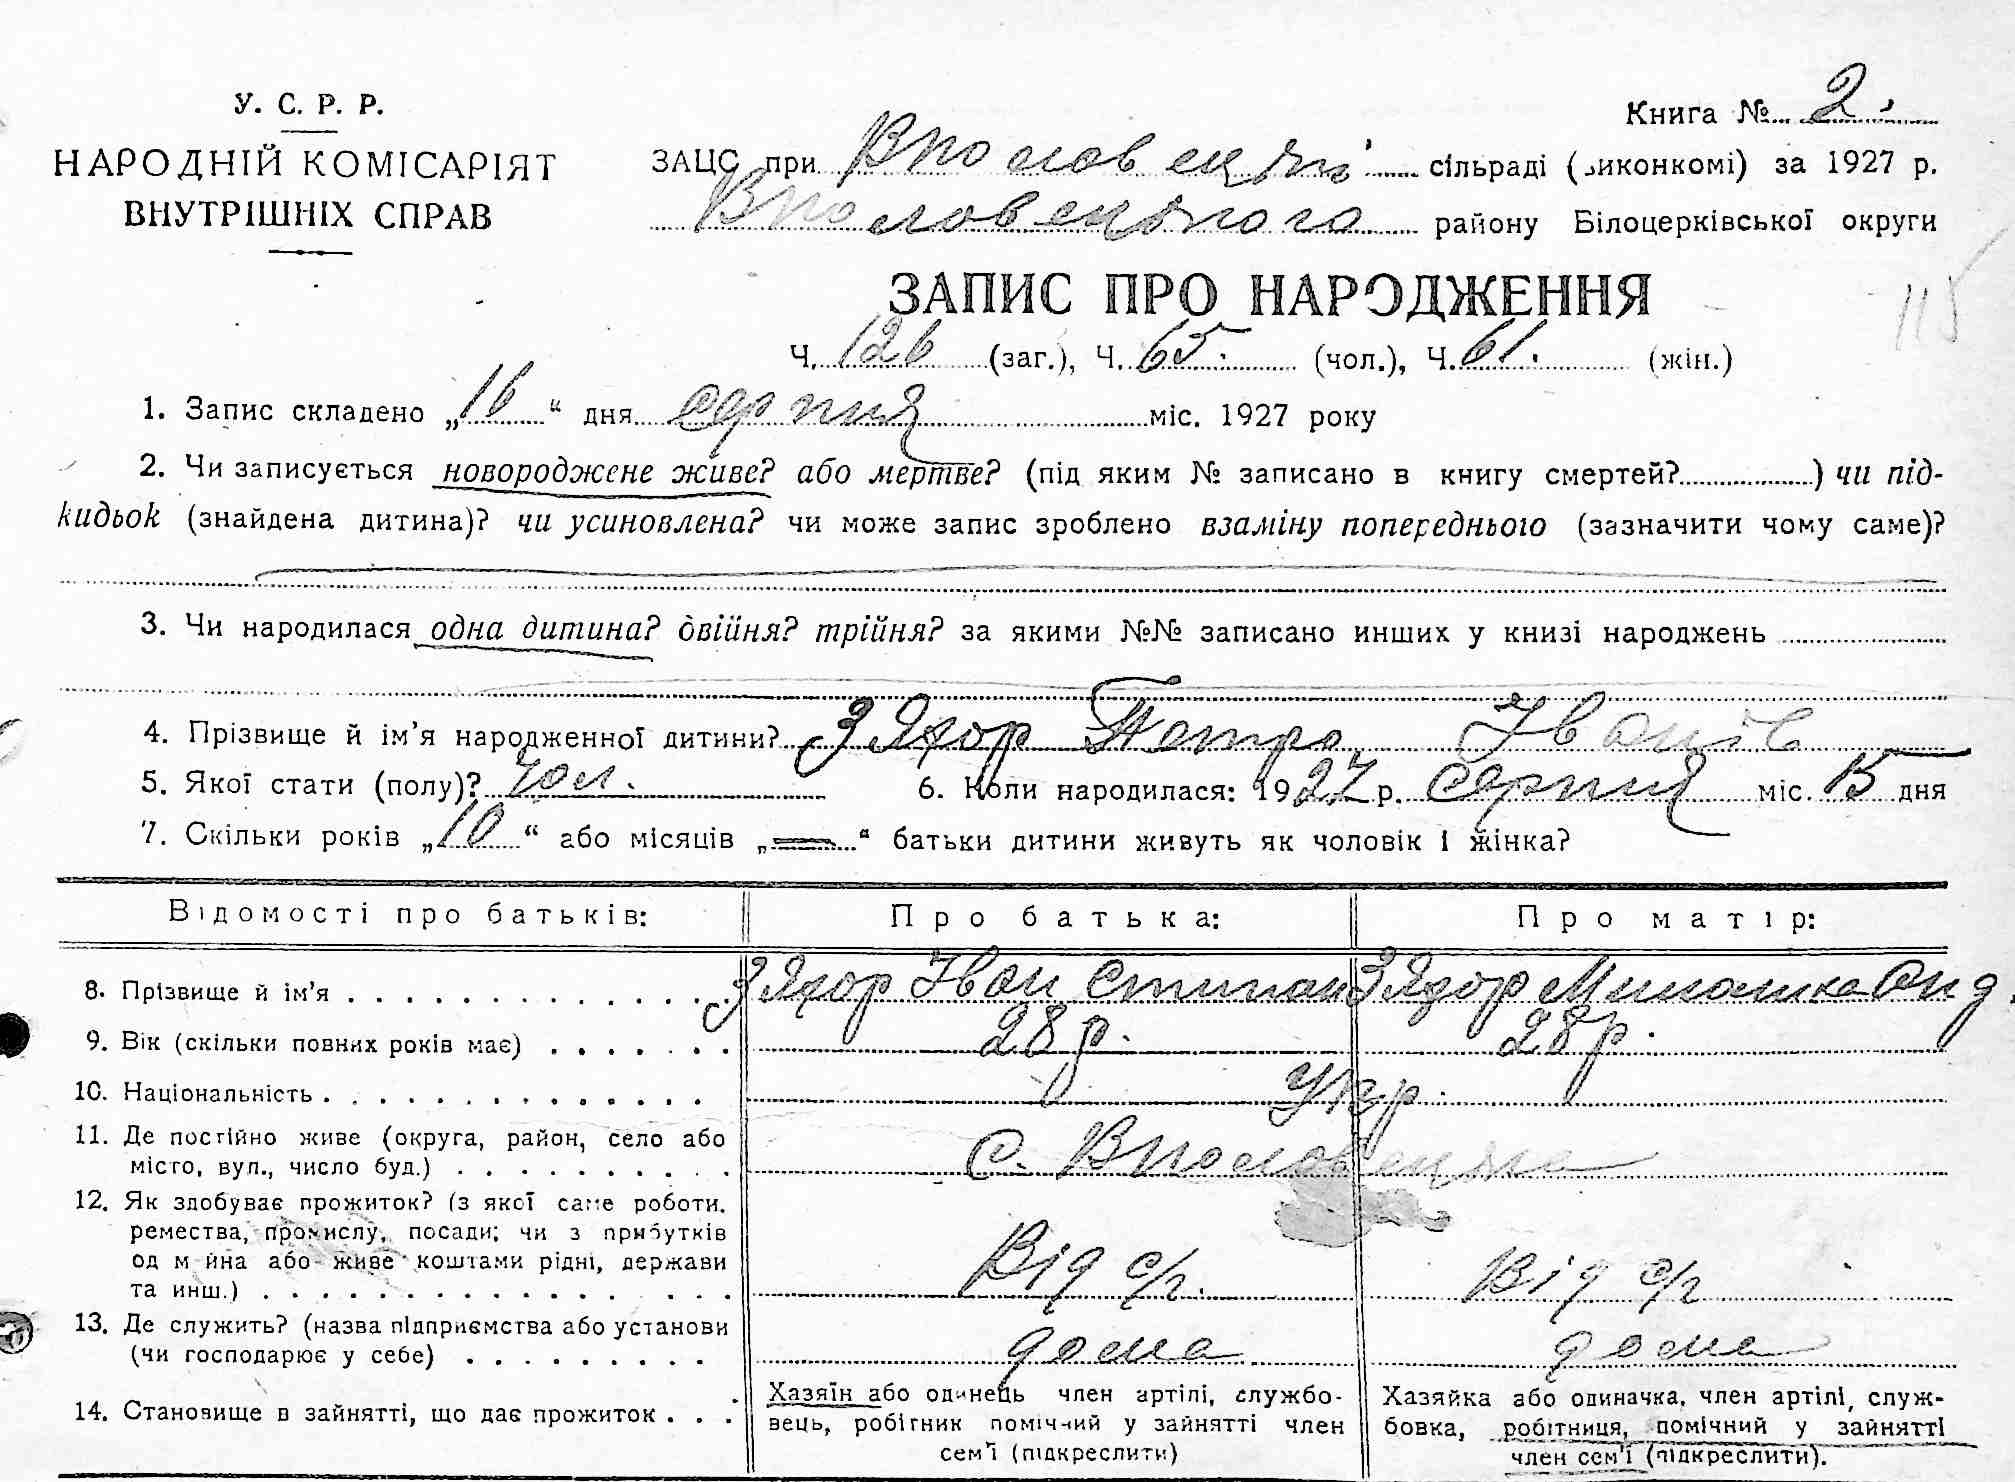 У. С. Р. Р.
НАРОДНІЙ КОМІСАРІЯТ
ВНУТРІШНІХ СПРАВ
Книга № 2.
ЗАЦС при Вполовецькій сільраді (виконкомі) за 1927 р.
Вполовецького району Білоцерківської округи
ЗАПИС ПРО НАРОДЖЕННЯ
115
Ч. 126 (заг.), Ч. 65. (чол.), Ч. 61. (жін.)
1. Запис складено „16“ дня серпня міс. 1927 року
2. Чи записується новороджене живе? або мертве? (під яким № записано в книгу смертей?..........) чи під-
кидьок (знайдена дитина)? чи усиновлена? чи може запис зроблено взаміну попереднього (зазначити чому саме)?
3. Чи народилася одна дитина? двійня? трійня? за якими №№ записано инших у книзі народжень
4. Прізвище й ім’я народженної дитини? Зяхор Петро Іванів
5. Якої стати (полу)? чол. 6. Коли народилася: 1927 р. серпня міс. 15 дня
7. Скільки років „10“ або місяців „—“ батьки дитини живуть як чоловік і жінка?
Відомості про батьків: Про батька: Про матір:
8. Прізвище й ім’я Зяхор Іван Степан Зяхор Онд.
9. Вік (скільки повних років має) 28 р. 28 р.
10. Національність Укр.
11. Де постійно живе (округа, район, село або
місто, вул., число буд.) с. Вполовецьке
12. Як здобуває прожиток? (з якої саме роботи.
ремества, промислу, посади; чи з прибутків
од майна або живе коштами рідні, держави
та инш.) Від с/г. Від с/г
13. Де служить? (назва підприємства або установи
(чи господарює у себе) дома дома
14. Становище в зайнятті, що дає прожиток
Хазяїн або одинець член артілі, службо-
вець, робітник помічний у зайнятті член
сем’ї (підкреслити)
Хазяйка або одиначка, член артілі, служ-
бовка, робітниця, помічний у зайнятті
член сем’ї (підкреслити).